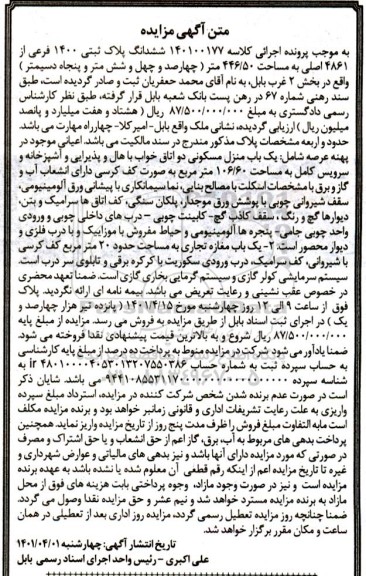 متن آگهی مزایده
به موجب پرونده اجرائی کلاسه ۱۴۰۱۰۰۱۷۷ ششدانگ پلاک ثبتی ۱۴۰۰ فرعی از
۴۸۶۱ اصلی به مساحت ۴۴۶/۵۰ متر ( چهارصد و چهل و شش متر و پنجاه دسیمتر )
واقع در بخش ۲ غرب بابل، به نام آقای محمد جعفریان ثبت و صادر گردیده است، طبق
سند رهنی شماره ۶۷ در رهن پست بانک شعبه بابل قرار گرفته، طبق نظر کارشناس
رسمی دادگستری به مبلغ ۸۷/۵۰۰/۰۰۰/۰۰۰ ریال ( هشتاد و هفت میلیارد و پانصد
میلیون ریال ) ارزیابی گردیده، نشانی ملک واقع بابل- امیرکلا- چهارراه مهارت می باشد.
حدود و اربعه مشخصات پلاک مذکور مندرج در سند مالکیت می باشد. اعیانی موجود در
پهنه عرصه شامل: یک باب منزل مسکونی دو اتاق خواب با هال و پذیرایی و آشپزخانه و
سرویس کامل به مساحت ۱۰۶/۶۰ متر مربع به صورت کف کرسی دارای انشعاب آب و
گاز و برق با مشخصات اسکلت با مصالح بنایی، نما سیمانکاری با پیشانی ورق آلومینیومی،
سقف شیروانی چوبی با پوشش ورق موجدار، پلکان سنگی، کف اتاق ها سرامیک و بتن،
دیوارها گچ و رنگ، سقف کاذب گچ- کابینت چوبی – درب های داخلی چوبی و ورودی
واحد چوبی جامل – پنجره ها آلومینیومی و حیاط مفروش با موزاییک و با درب فلزی و
دیوار محصور است. ۲- یک باب مغازه تجاری به مساحت حدود ۲۰ متر مربع کف کرسی
با شیروانی، کف سرامیک، درب ورودی سکوریت با کرکره برقی و تابلوی سر درب است.
سیستم سرمایشی کولر گازی و سیستم گرمایی بخاری گازی است. ضمنا تعهد محضری
در خصوص عقب نشینی و رعایت تعریض می باشد. بیمه نامه ای ارائه نگردید. پلاک
فوق از ساعت ۹ الی ۱۲ روز چهارشنبه مورخ ۱۴۰۱/۴/۱۵ ( پانزده تیر هزار چهارصد و
یک ) در اجرای ثبت اسناد بابل از طریق مزایده به فروش می رسد. مزایده از مبلغ پایه
۸۷/۵۰۰/۰۰۰/۰۰۰ ریال شروع و به بالاترین قیمت پیشنهادی نقدا فروخته می شود.
ضمنا یادآور می شود شرکت در مزایده منوط به پرداخت ده درصد از مبلغ پایه کارشناسی
به حساب سپرده ثبت به شماره حساب ir ۴۸۰۱۰۰۰۰۴۰۵۳۰۱۳۲۰۷۵۵۰۳۸۶ به
شناسه سپرده می باشد. شایان ذکر
است در صورت عدم برنده شدن شخص شرکت کننده در مزایده، استرداد مبلغ سپرده
واریزی به علت رعایت تشریفات اداری و قانونی زمانبر خواهد بود و برنده مزایده مکلف
است مابه التفاوت مبلغ فروش را ظرف مدت پنج روز از تاریخ مزایده واریز نماید. همچنین
پرداخت بدهی های مربوط به آب، برق، گاز اعم از حق انشعاب و یا حق اشتراک و مصرف
در صورتی که مورد مزایده دارای آنها باشد و نیز بدهی های مالیاتی و عوارض شهرداری و
غیره تا تاریخ مزایده اعم از اینکه رقم قطعی آن معلوم شده یا نشده باشد به عهده برنده
مزایده است و نیز در صورت وجود مازاد، وجوه پرداختی بابت هزینه های فوق از محل
مازاد به برنده مزایده مسترد خواهد شد و نیم عشر و حق مزایده نقدا وصول می گردد.
ضمنا چنانچه روز مزایده تعطیل رسمی گردد، مزایده روز اداری بعد از تعطیلی در همان
ساعت و مکان مقرر برگزار خواهد شد.
تاریخ انتشار آگهی: چهارشنبه ۱۴۰۱/۰۴/۰۱
علی اکبری – رئیس واحد اجرای اسناد رسمی بابل